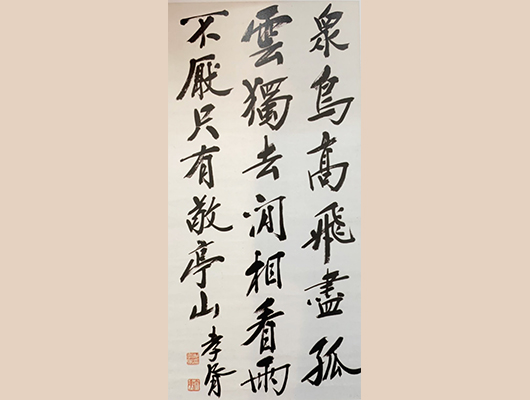 眾鳥高飛盡孤
雲獨去閒相看兩
不厭只有敬亭山
孝胥